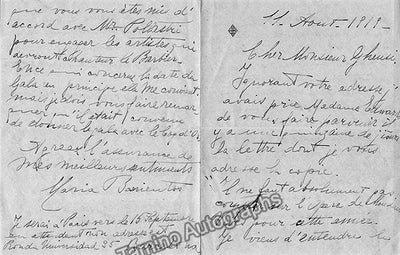 11. Aout. 1919 -
Cher Monsieur Gheusi,
Ignorant votre adresse j'
avais prié Madame
de vous faire parvenir il
y a une quinzaine de jours
la lettre dont je vous
adresse la copie.
Il ne faut absolument pas
compter sur l'
pour cette
Je viens d'entendre le
que vous vous êtes mis d'
accord avec Mr
pour engager les artistes qui
devront chanter le Barbier.
En ce qui concerne la date du
Gala en principe elle me convient
mais je dois vous faire remar
quer qu'il était convenu
de donner le Gala avec le
Agréez l'assurance de
mes meilleurs sentiments
Maria Barrientos
Je serai à Paris vers le 15 Septembre
en attendant mon adresse est
Ronda Universidad 35
Tamino Autographs